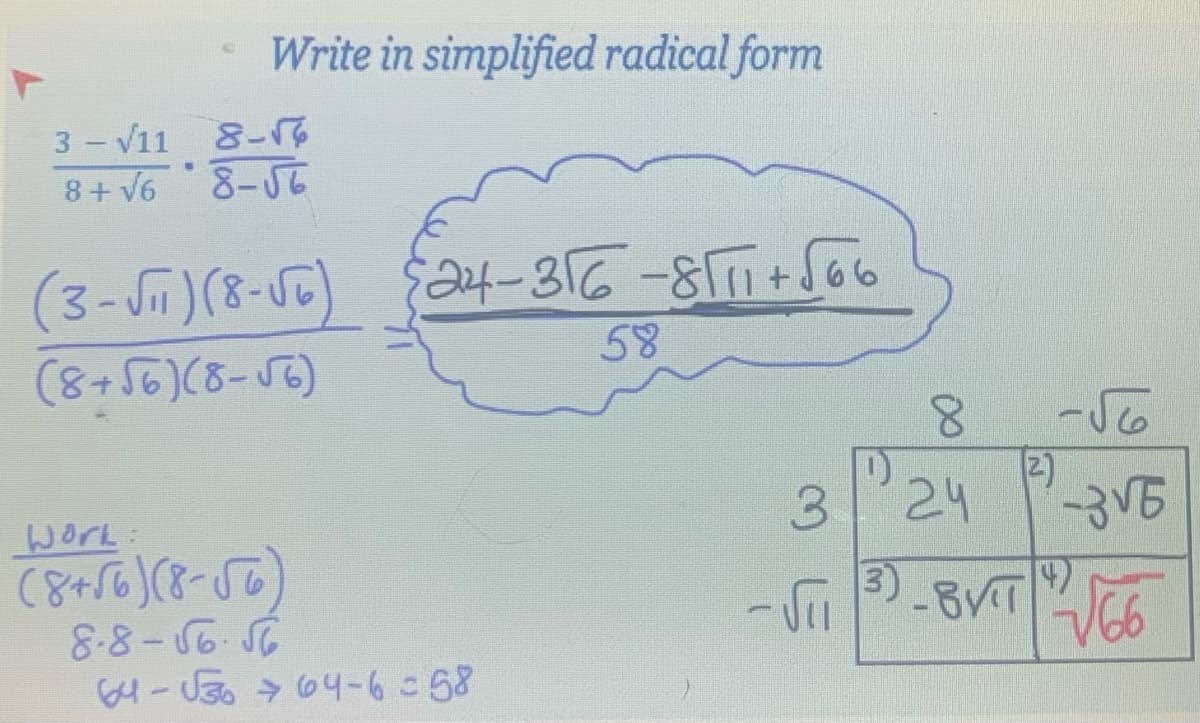 Write in simplified radical form
3 - √11 / 8 + √6 · 8-√6 / 8-√6
(3-√11)(8-√6) / (8+√6)(8-√6) = 24-3√6 -8√11 + √66 / 58
8 -√6
3 1) 24 2) -3√6
-√11 3) -8√11 4) √66
Work:
(8+√6)(8-√6)
8·8 - √6·√6
64 - √36 → 64-6 = 58